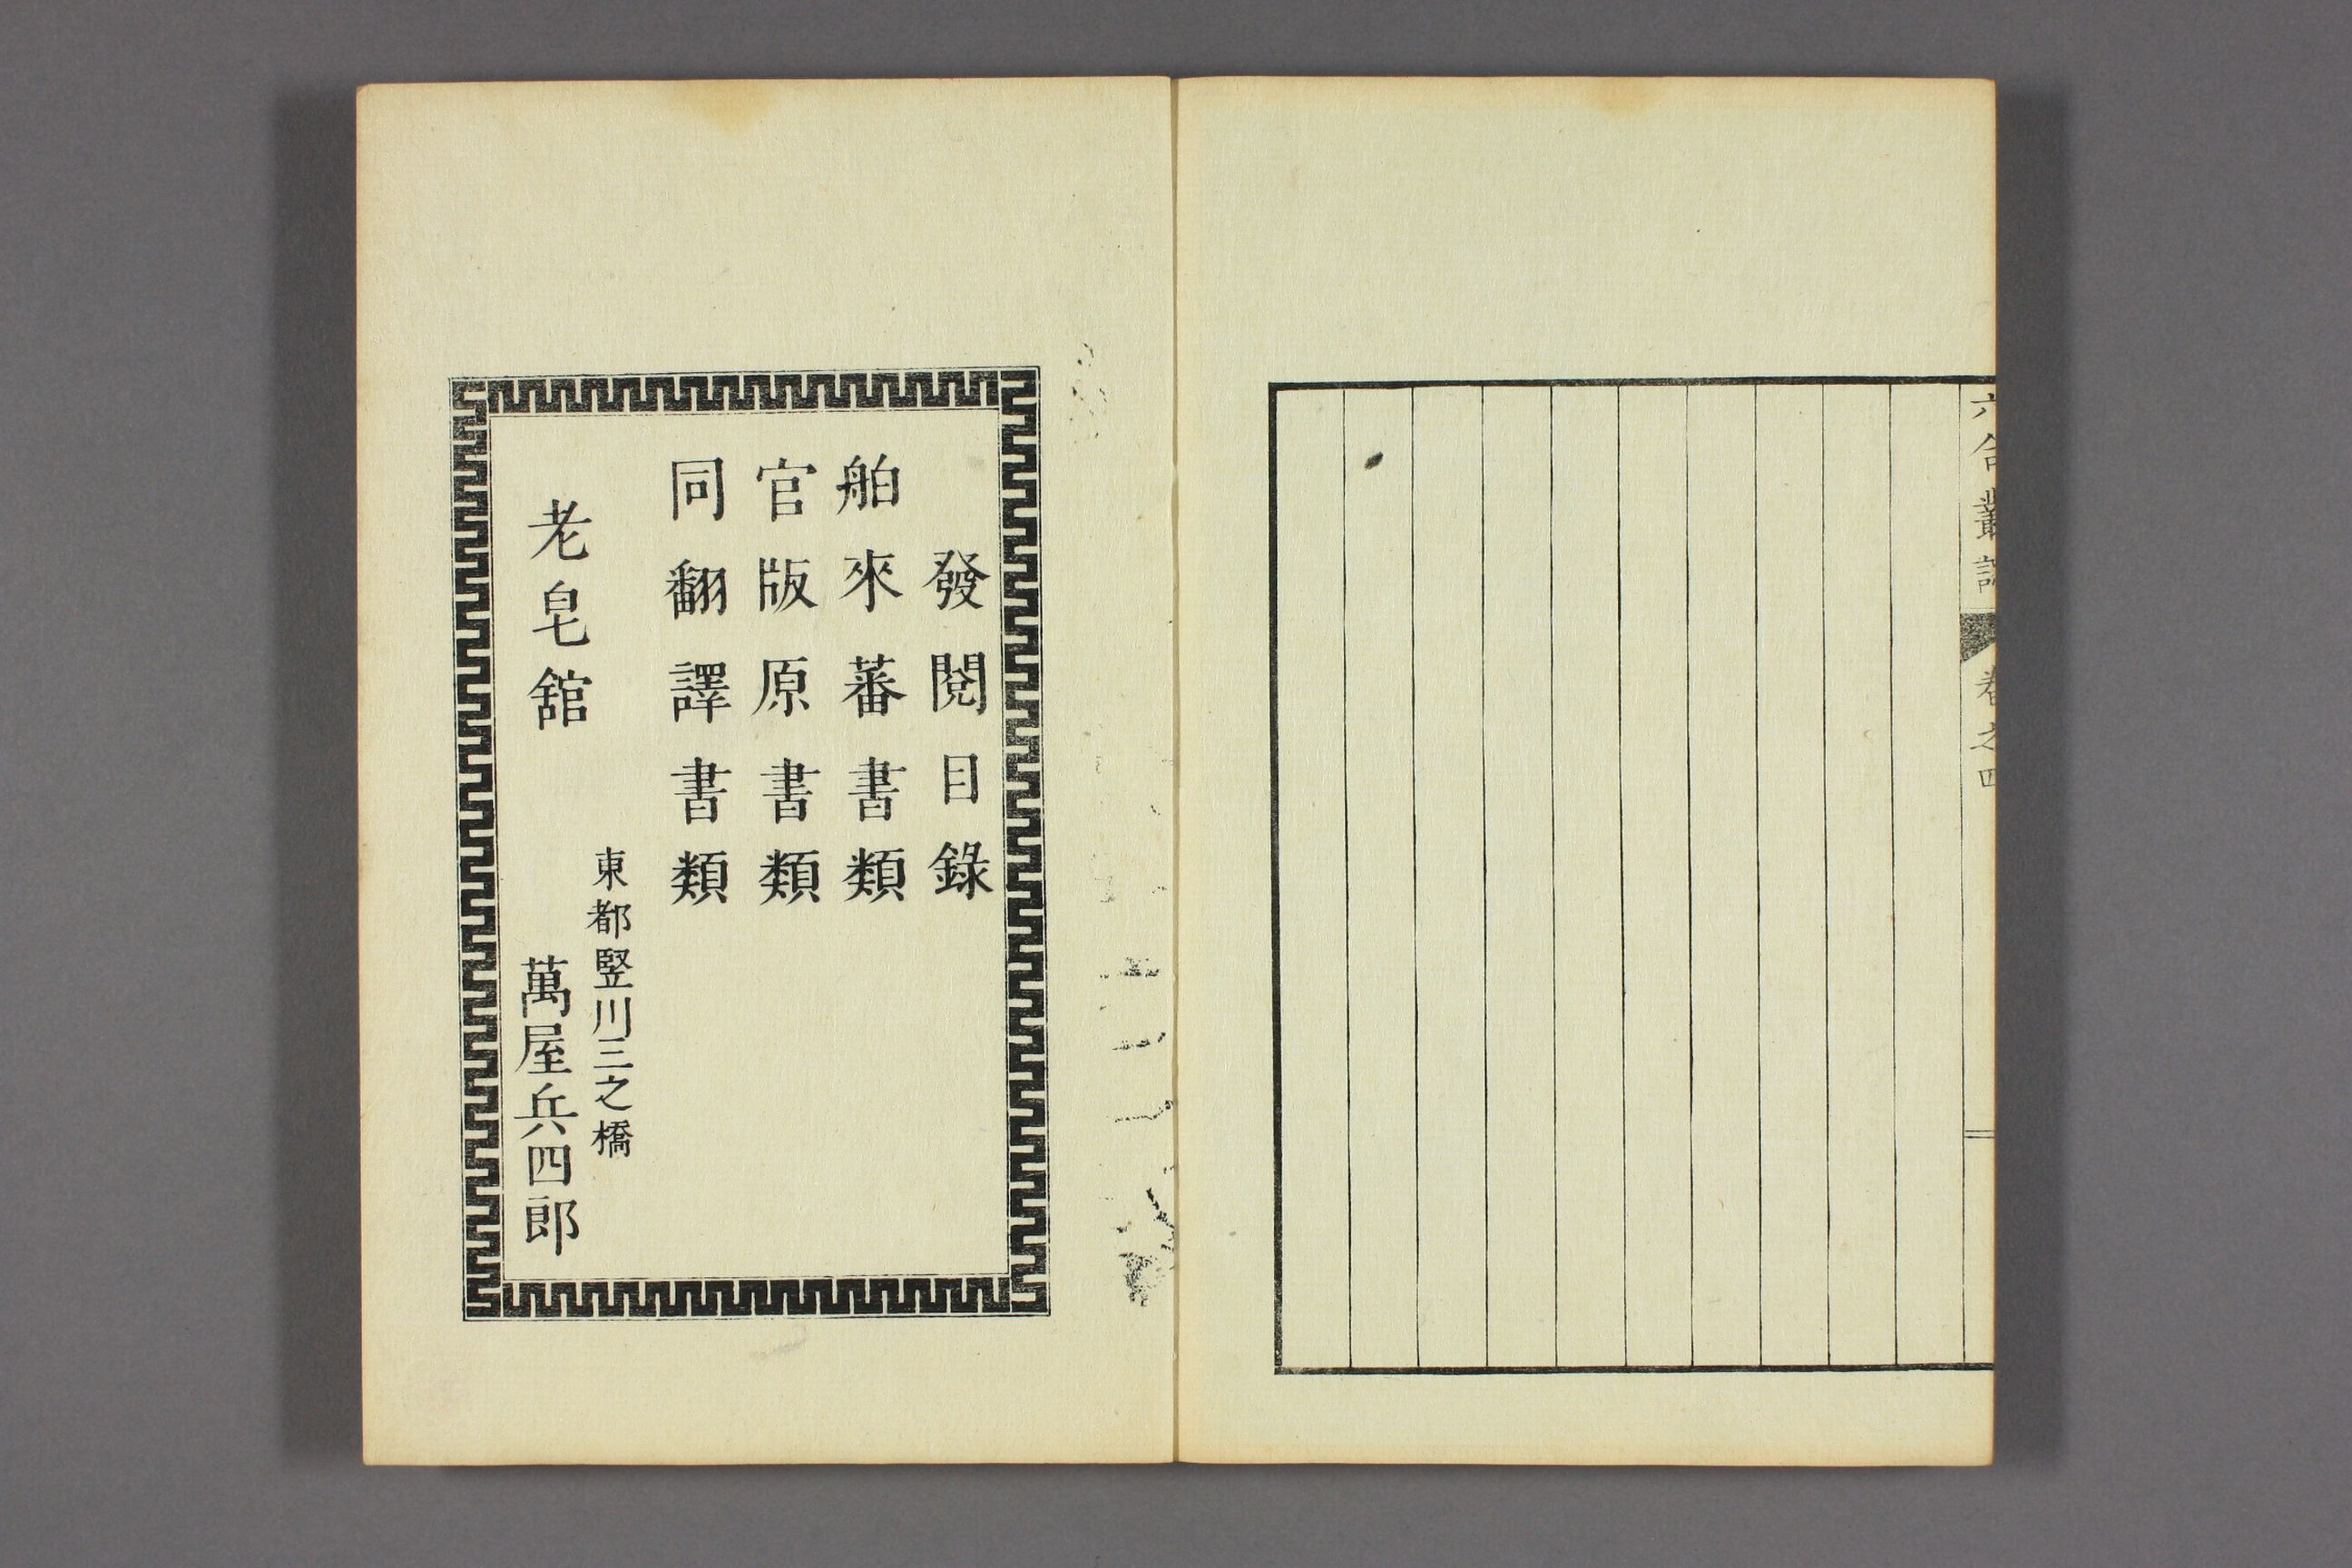 六合叢談
卷之四
發閱目錄
舶來蕃書類
官版原書類
同翻譯書類
東都竪川三之橋
老皂舘
萬屋兵四郎